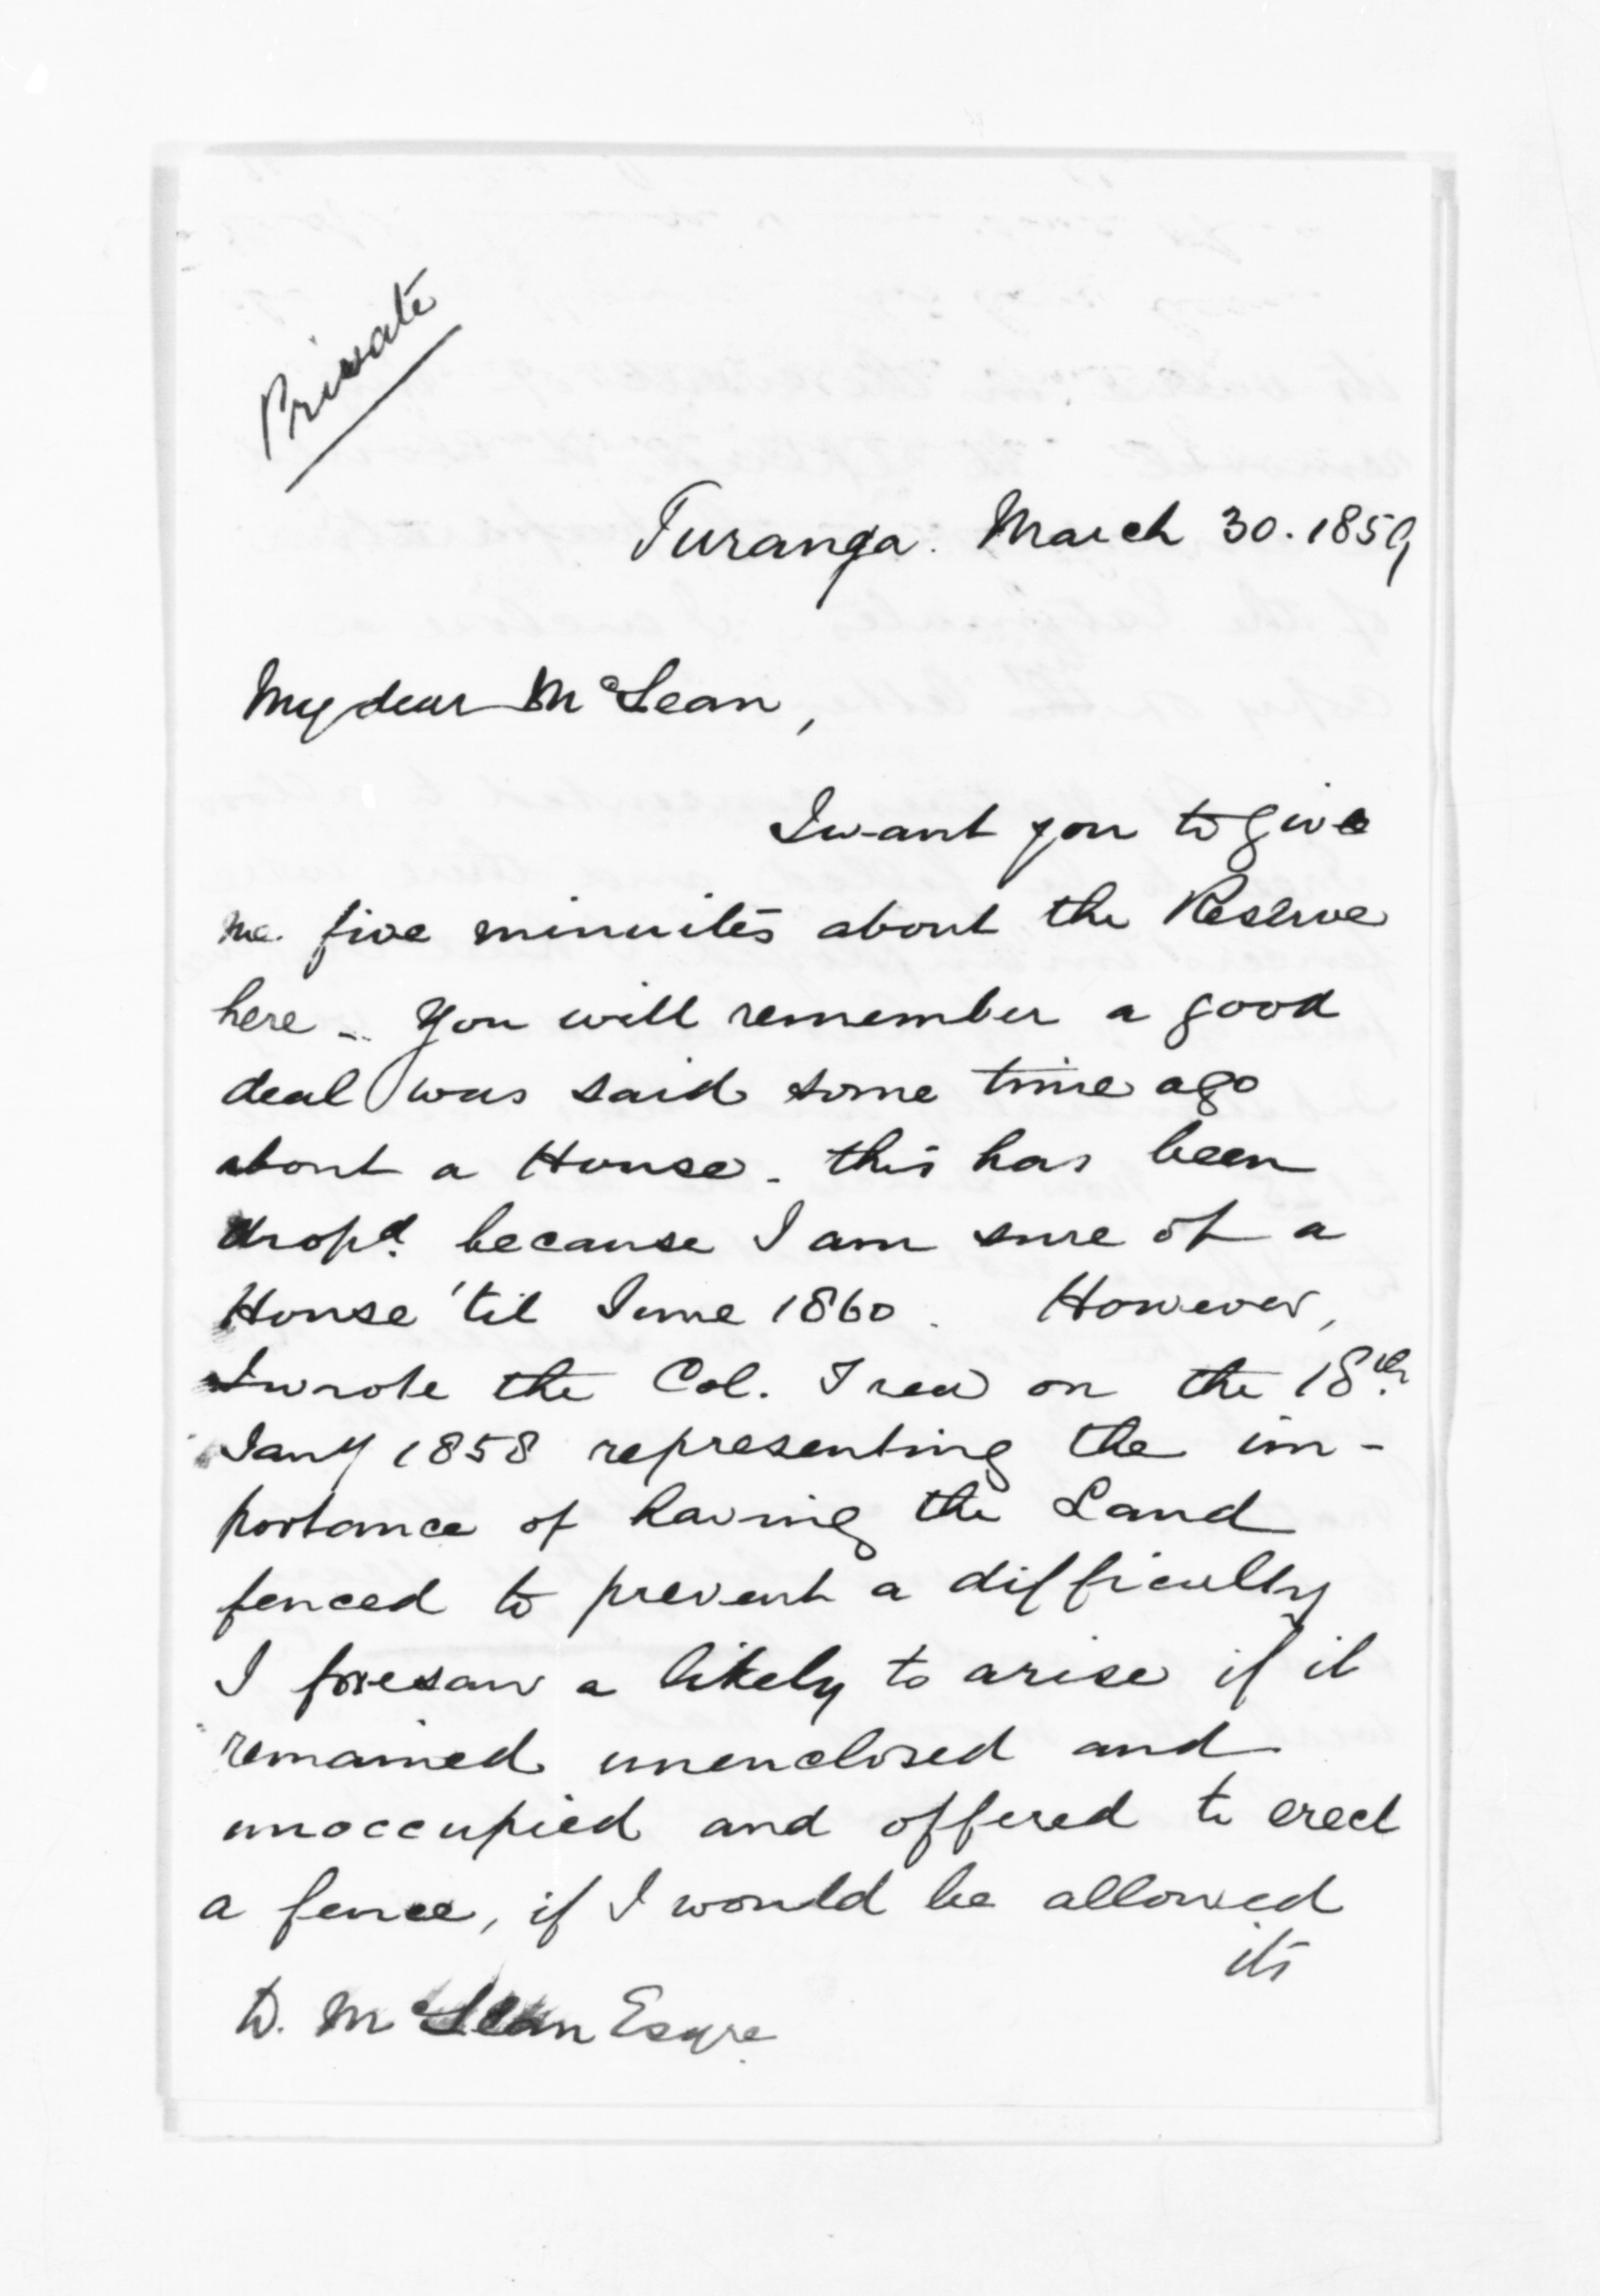 Private
Turanga. March 30. 1859
My dear McLean,
I want you to give
me five minuites about the Reserve
here - You will remember a good
deal was said some time ago
about a House - this has been
dropd. because I am sure of a
House 'til June 1860. However,
I wrote the Col. Trea on the 18th.
Jany 1858 representing the im-
portance of having the Land
fenced to prevent a difficulty
I foresaw a likely to arise if it
remained unenclosed and
unoccupied and offered to erect
a fence, if I would be allowed
its
D. McLean Esqre